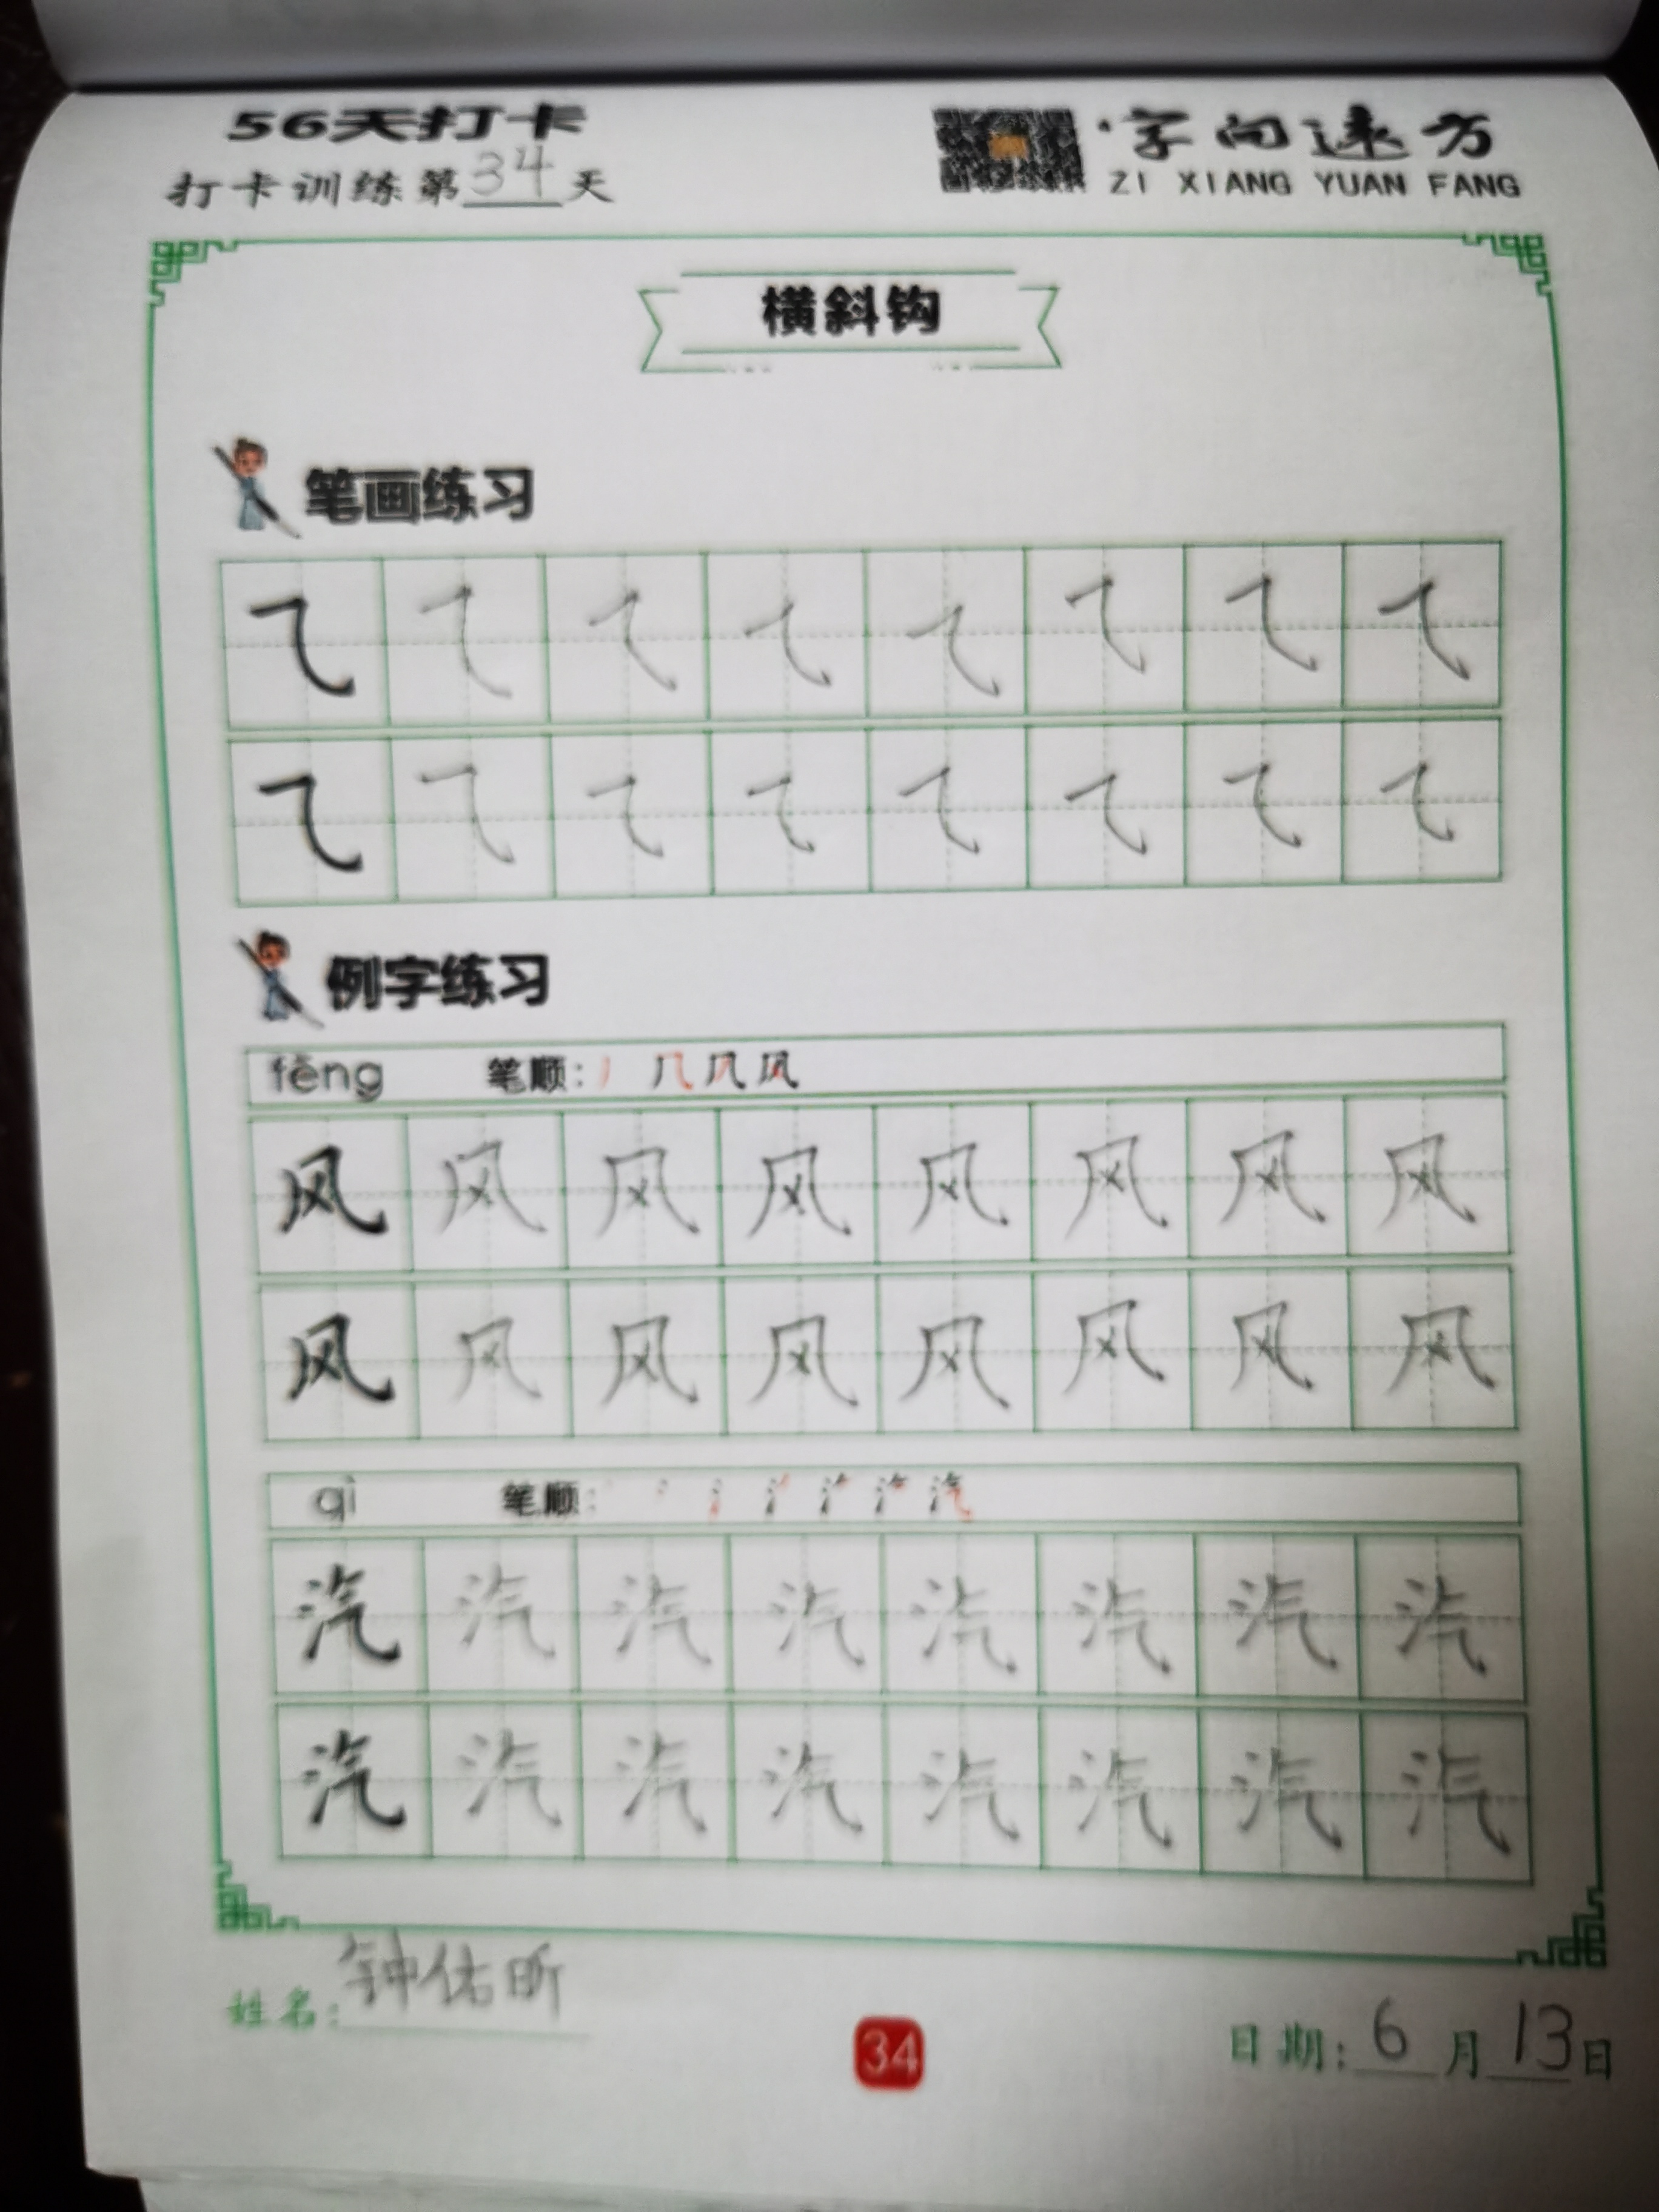 56天打卡
打卡训练第34天
字向远方
ZI XIANG YUAN FANG
横斜钩
笔画练习
例字练习
fēng 笔顺:
风 风 风 风 风 风 风 风
风 风 风 风 风 风 风 风
qì 笔顺:
汽 汽 汽 汽 汽 汽 汽 汽
汽 汽 汽 汽 汽 汽 汽 汽
姓名:钟佑昕
34
日期:6月13日